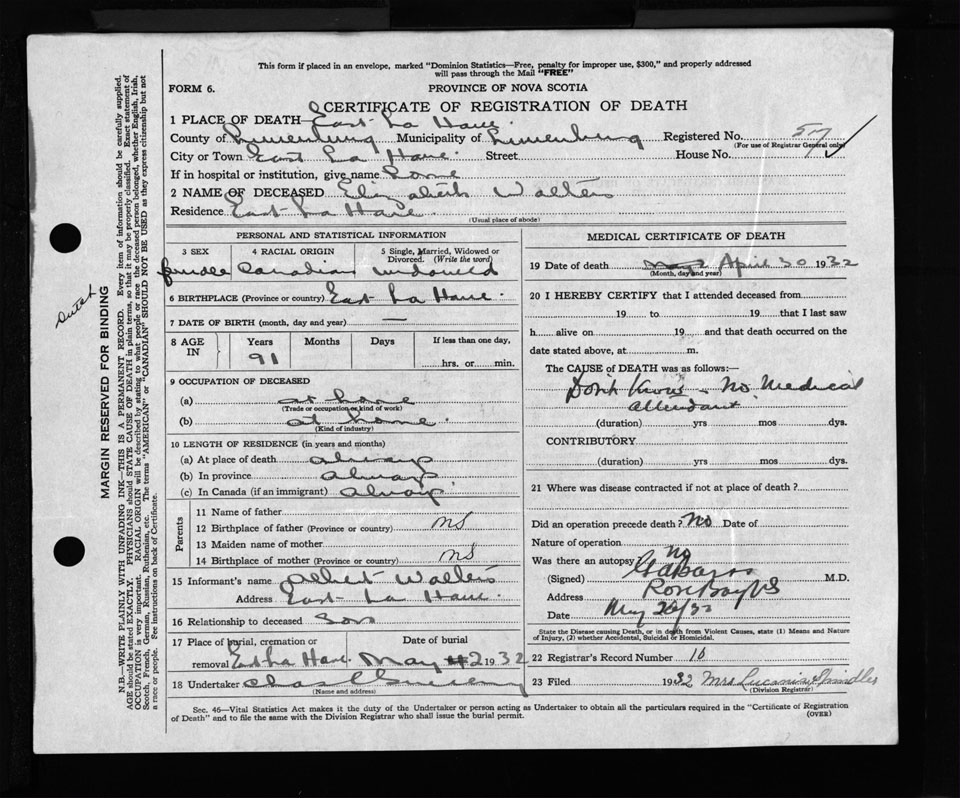 This form if placed in an envelope, marked "Dominion Statistics—Free, penalty for improper use, $300," and properly addressed
will pass through the Mail "FREE"
FORM 6.
PROVINCE OF NOVA SCOTIA
CERTIFICATE OF REGISTRATION OF DEATH
1 PLACE OF DEATH East La Have
County of Lunenburg Municipality of Lunenburg Registered No. 517
(For use of Registrar General only)
City or Town East La Have Street House No.
If in hospital or institution, give name
2 NAME OF DECEASED Elizabeth Walters
Residence East La Have
(Usual place of abode)
PERSONAL AND STATISTICAL INFORMATION
3 SEX 4 RACIAL ORIGIN 5 Single, Married, Widowed or
Divorced. (Write the word)
female Canadian widowed
6 BIRTHPLACE (Province or country) East La Have
7 DATE OF BIRTH (month, day and year) —
8 AGE IN Years Months Days If less than one day,
91 hrs. or min.
9 OCCUPATION OF DECEASED
(a) at home
(Trade or occupation or kind of work)
(b) at home
(Kind of industry)
10 LENGTH OF RESIDENCE (in years and months)
(a) At place of death always
(b) In province always
(c) In Canada (if an immigrant) always
Parents
11 Name of father
12 Birthplace of father (Province or country) NS
13 Maiden name of mother
14 Birthplace of mother (Province or country) NS
15 Informant's name Albert Walters
Address East La Have
16 Relationship to deceased Son
17 Place of burial, cremation or Date of burial
removal East La Have May 2 1932
18 Undertaker Chas
(Name and address)
MEDICAL CERTIFICATE OF DEATH
19 Date of death April 30 1932
(Month, day and year)
20 I HEREBY CERTIFY that I attended deceased from
19 to 19 that I last saw
h alive on 19 and that death occurred on
date stated above, at m.
The CAUSE of DEATH was as follows:—
Don't Know – No Medical
attendant
(duration) yrs mos dys.
CONTRIBUTORY
(duration) yrs mos dys.
21 Where was disease contracted if not at place of death?
Did an operation precede death? No Date of
Nature of operation
Was there an autopsy No
(Signed) M.D.
Address Rose Bay NS
Date May 26/32
State the Disease causing Death, or in death from Violent Causes, state (1) Means and Nature
of Injury, (2) whether Accidental, Suicidal or Homicidal.
22 Registrar's Record Number 10
23 Filed 1932 Mrs. Lucanus Spindler
(Division Registrar)
Sec. 46—Vital Statistics Act makes it the duty of the Undertaker or person acting as Undertaker to obtain all the particulars required in the "Certificate of Registration
of Death" and to file the same with the Division Registrar who shall issue the burial permit. (OVER)
Dutch
MARGIN RESERVED FOR BINDING
N.B.—WRITE PLAINLY WITH UNFADING INK—THIS IS A PERMANENT RECORD. Every item of information should be carefully supplied.
AGE should be stated EXACTLY. PHYSICIANS should STATE CAUSE OF DEATH in plain terms, so that it may be properly classified. Exact statement of
OCCUPATION is very important. RACIAL ORIGIN will be described by stating to what people or race the deceased person belonged, whether English, Irish,
Scotch, French, German, Russian, Ruthenian, etc. The terms "AMERICAN" or "CANADIAN" SHOULD NOT BE USED as they express citizenship but not
a race or people. See instructions on back of Certificate.